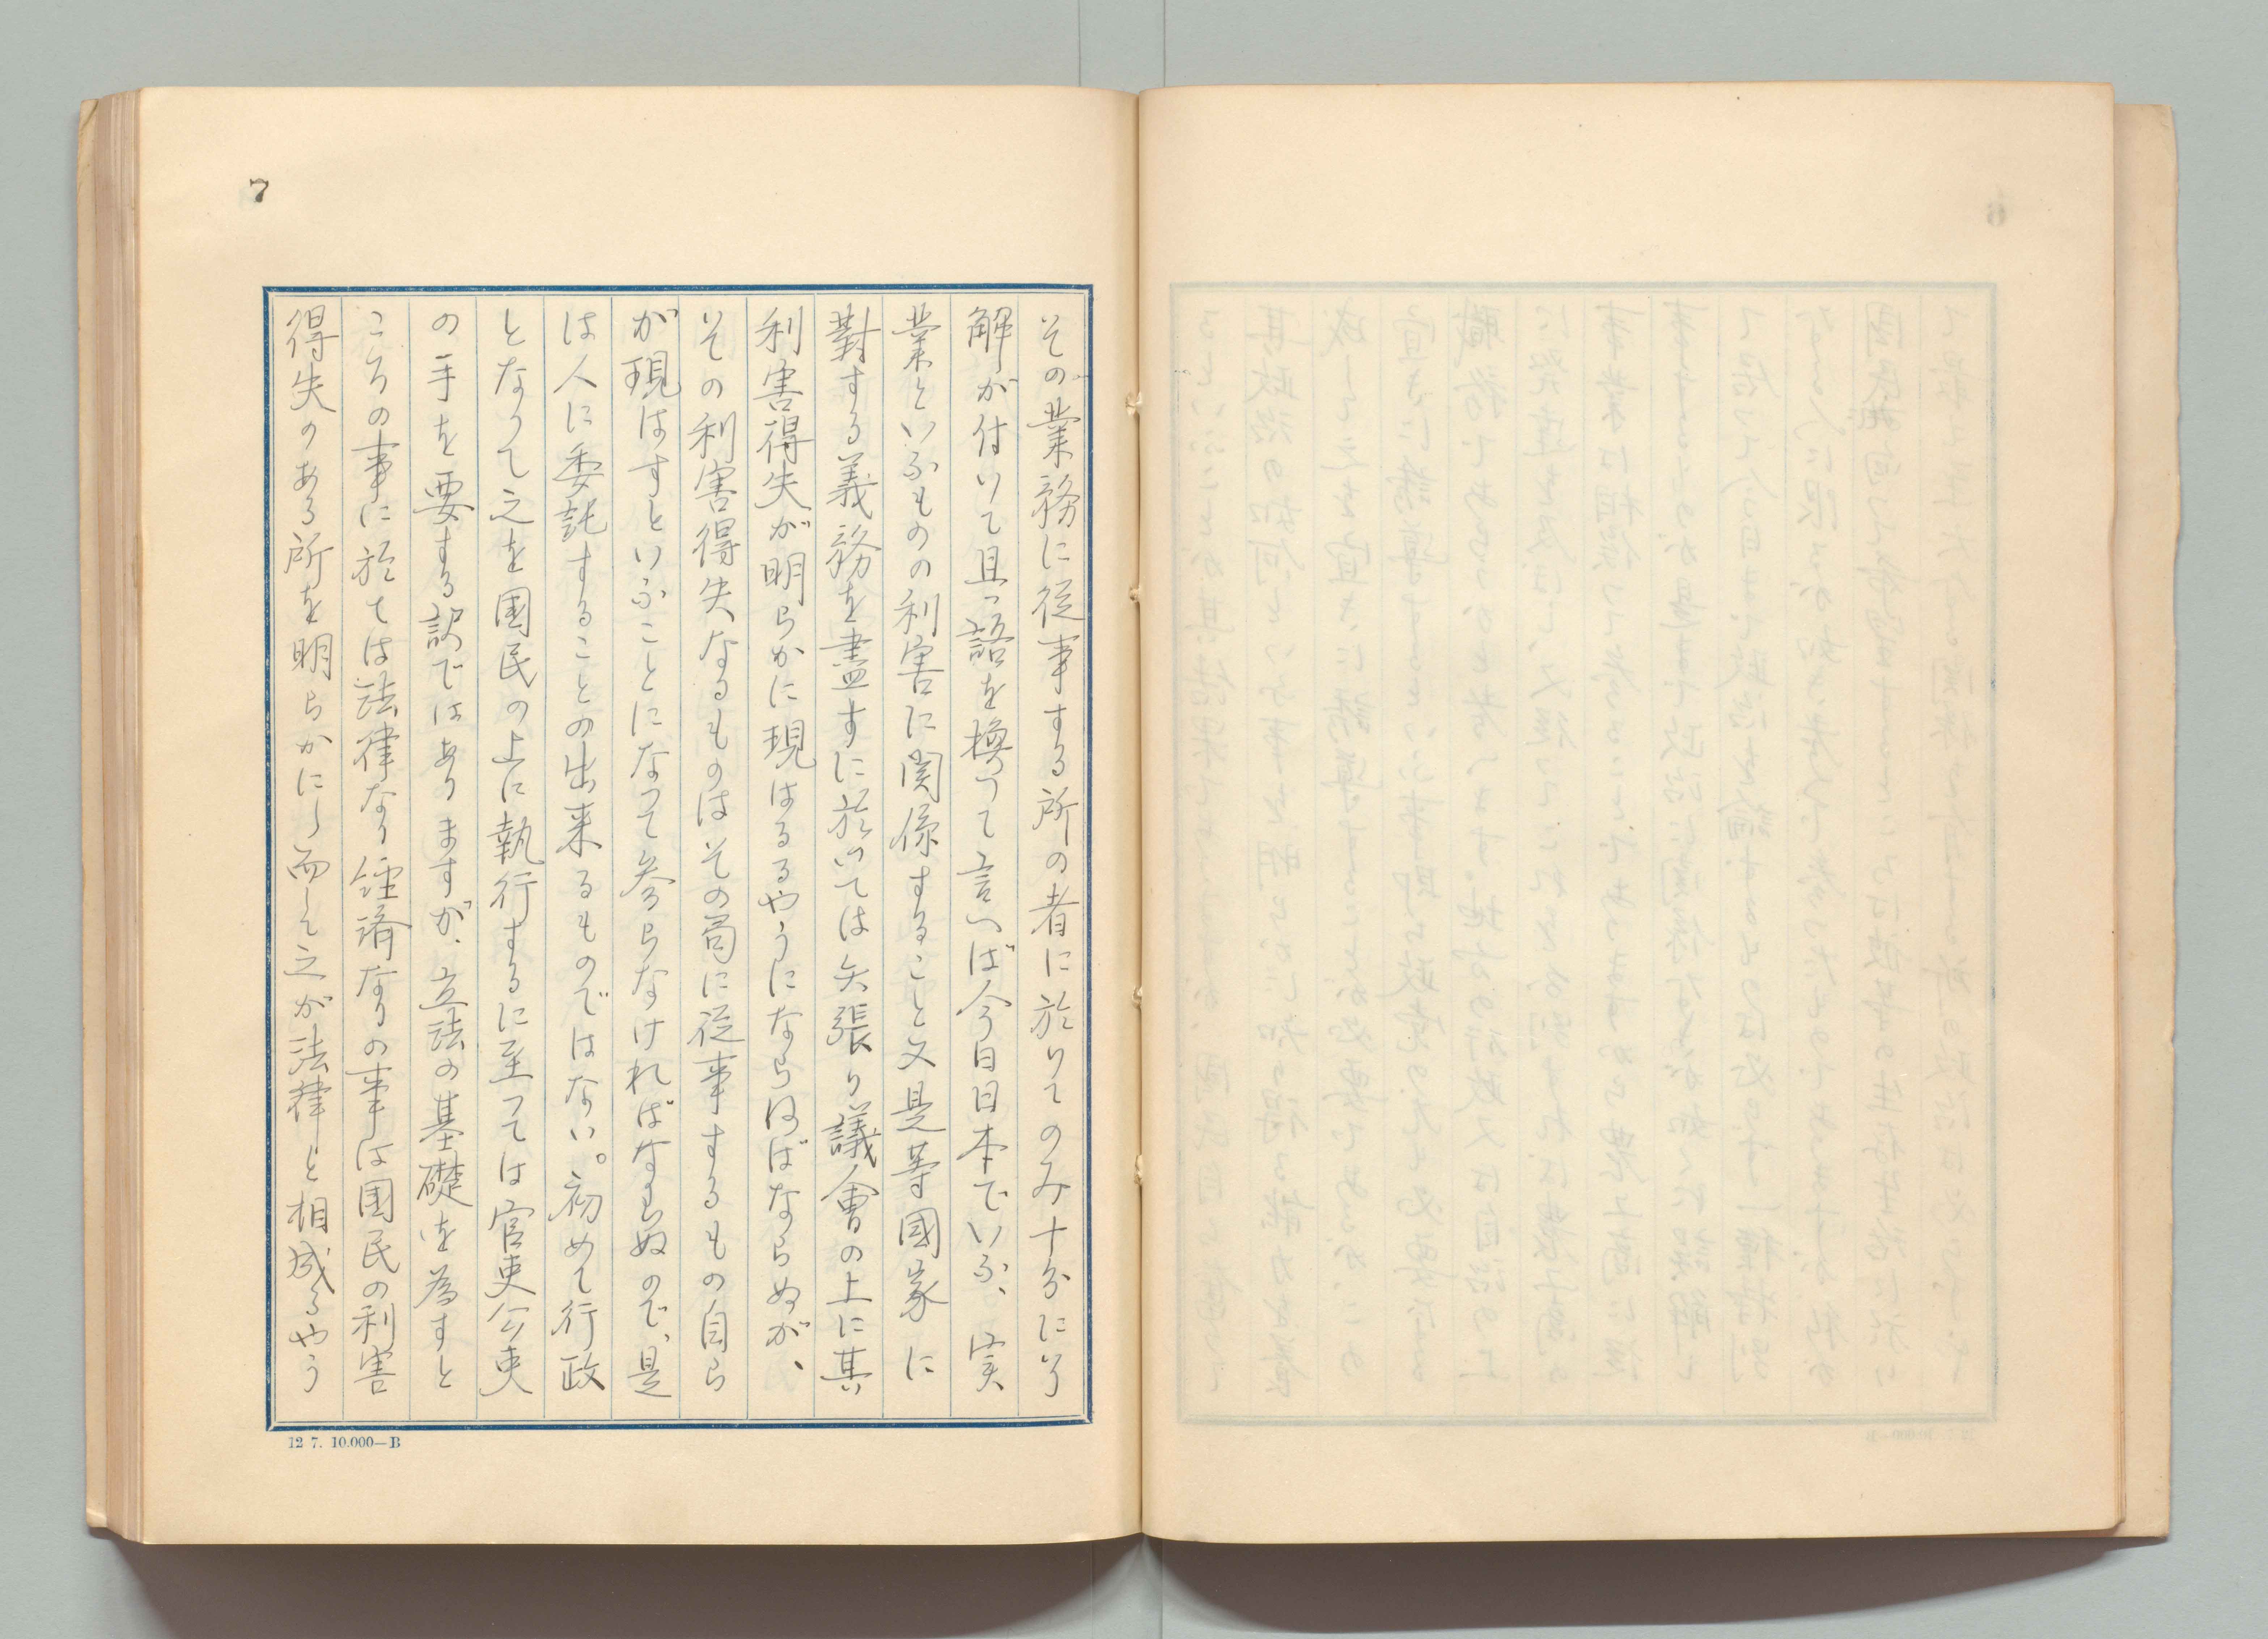 7
その業務に従事する所の者に於いてのみ十分に
解が付いて且つ語を換へて言へば今日日本でいふ、実
業といふものの利害に関係すること又是等國家に
對する義務を盡すに於いては矢張り議會の上に其
利害得失が明らかに現はるるやうにならねばならぬが、
その利害得失なるものはその局に従事するもの自ら
が現はすといふことになって参らなければならぬので、是
は人に委託することの出来るものではない。初めて行政
となって之を国民の上に執行するに至っては官吏公吏
の手を要する訳ではありますが、立法の基礎を為すと
ころの事に於ては法律なり経済なりの事は国民の利害
得失のある所を明らかにし而して之が法律と相成るやう
12 7. 10.000—B